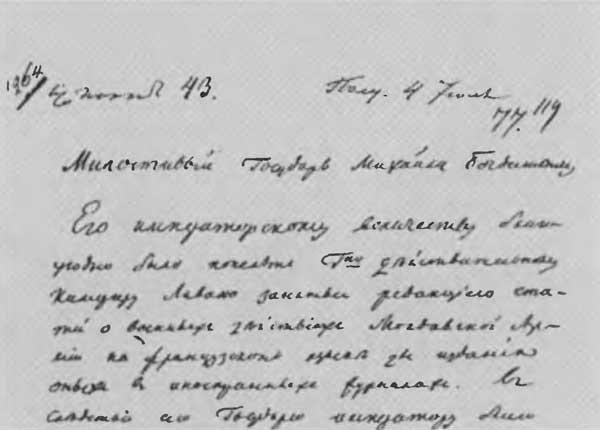 1264/ 43. Пол. 4 Июля
77. 119
Милостивый Государь Михаилъ Богдановичъ
Его императорскому величеству благо-
угодно было повелеть Гну действительному
Камергеру заняться редакціею ста-
тьи о военныхъ действіяхъ Молдавской Ар-
міи на французскомъ языке для изданія
оныхъ в иностранныхъ журналахъ. Въ
следствіе сего Государю императору было